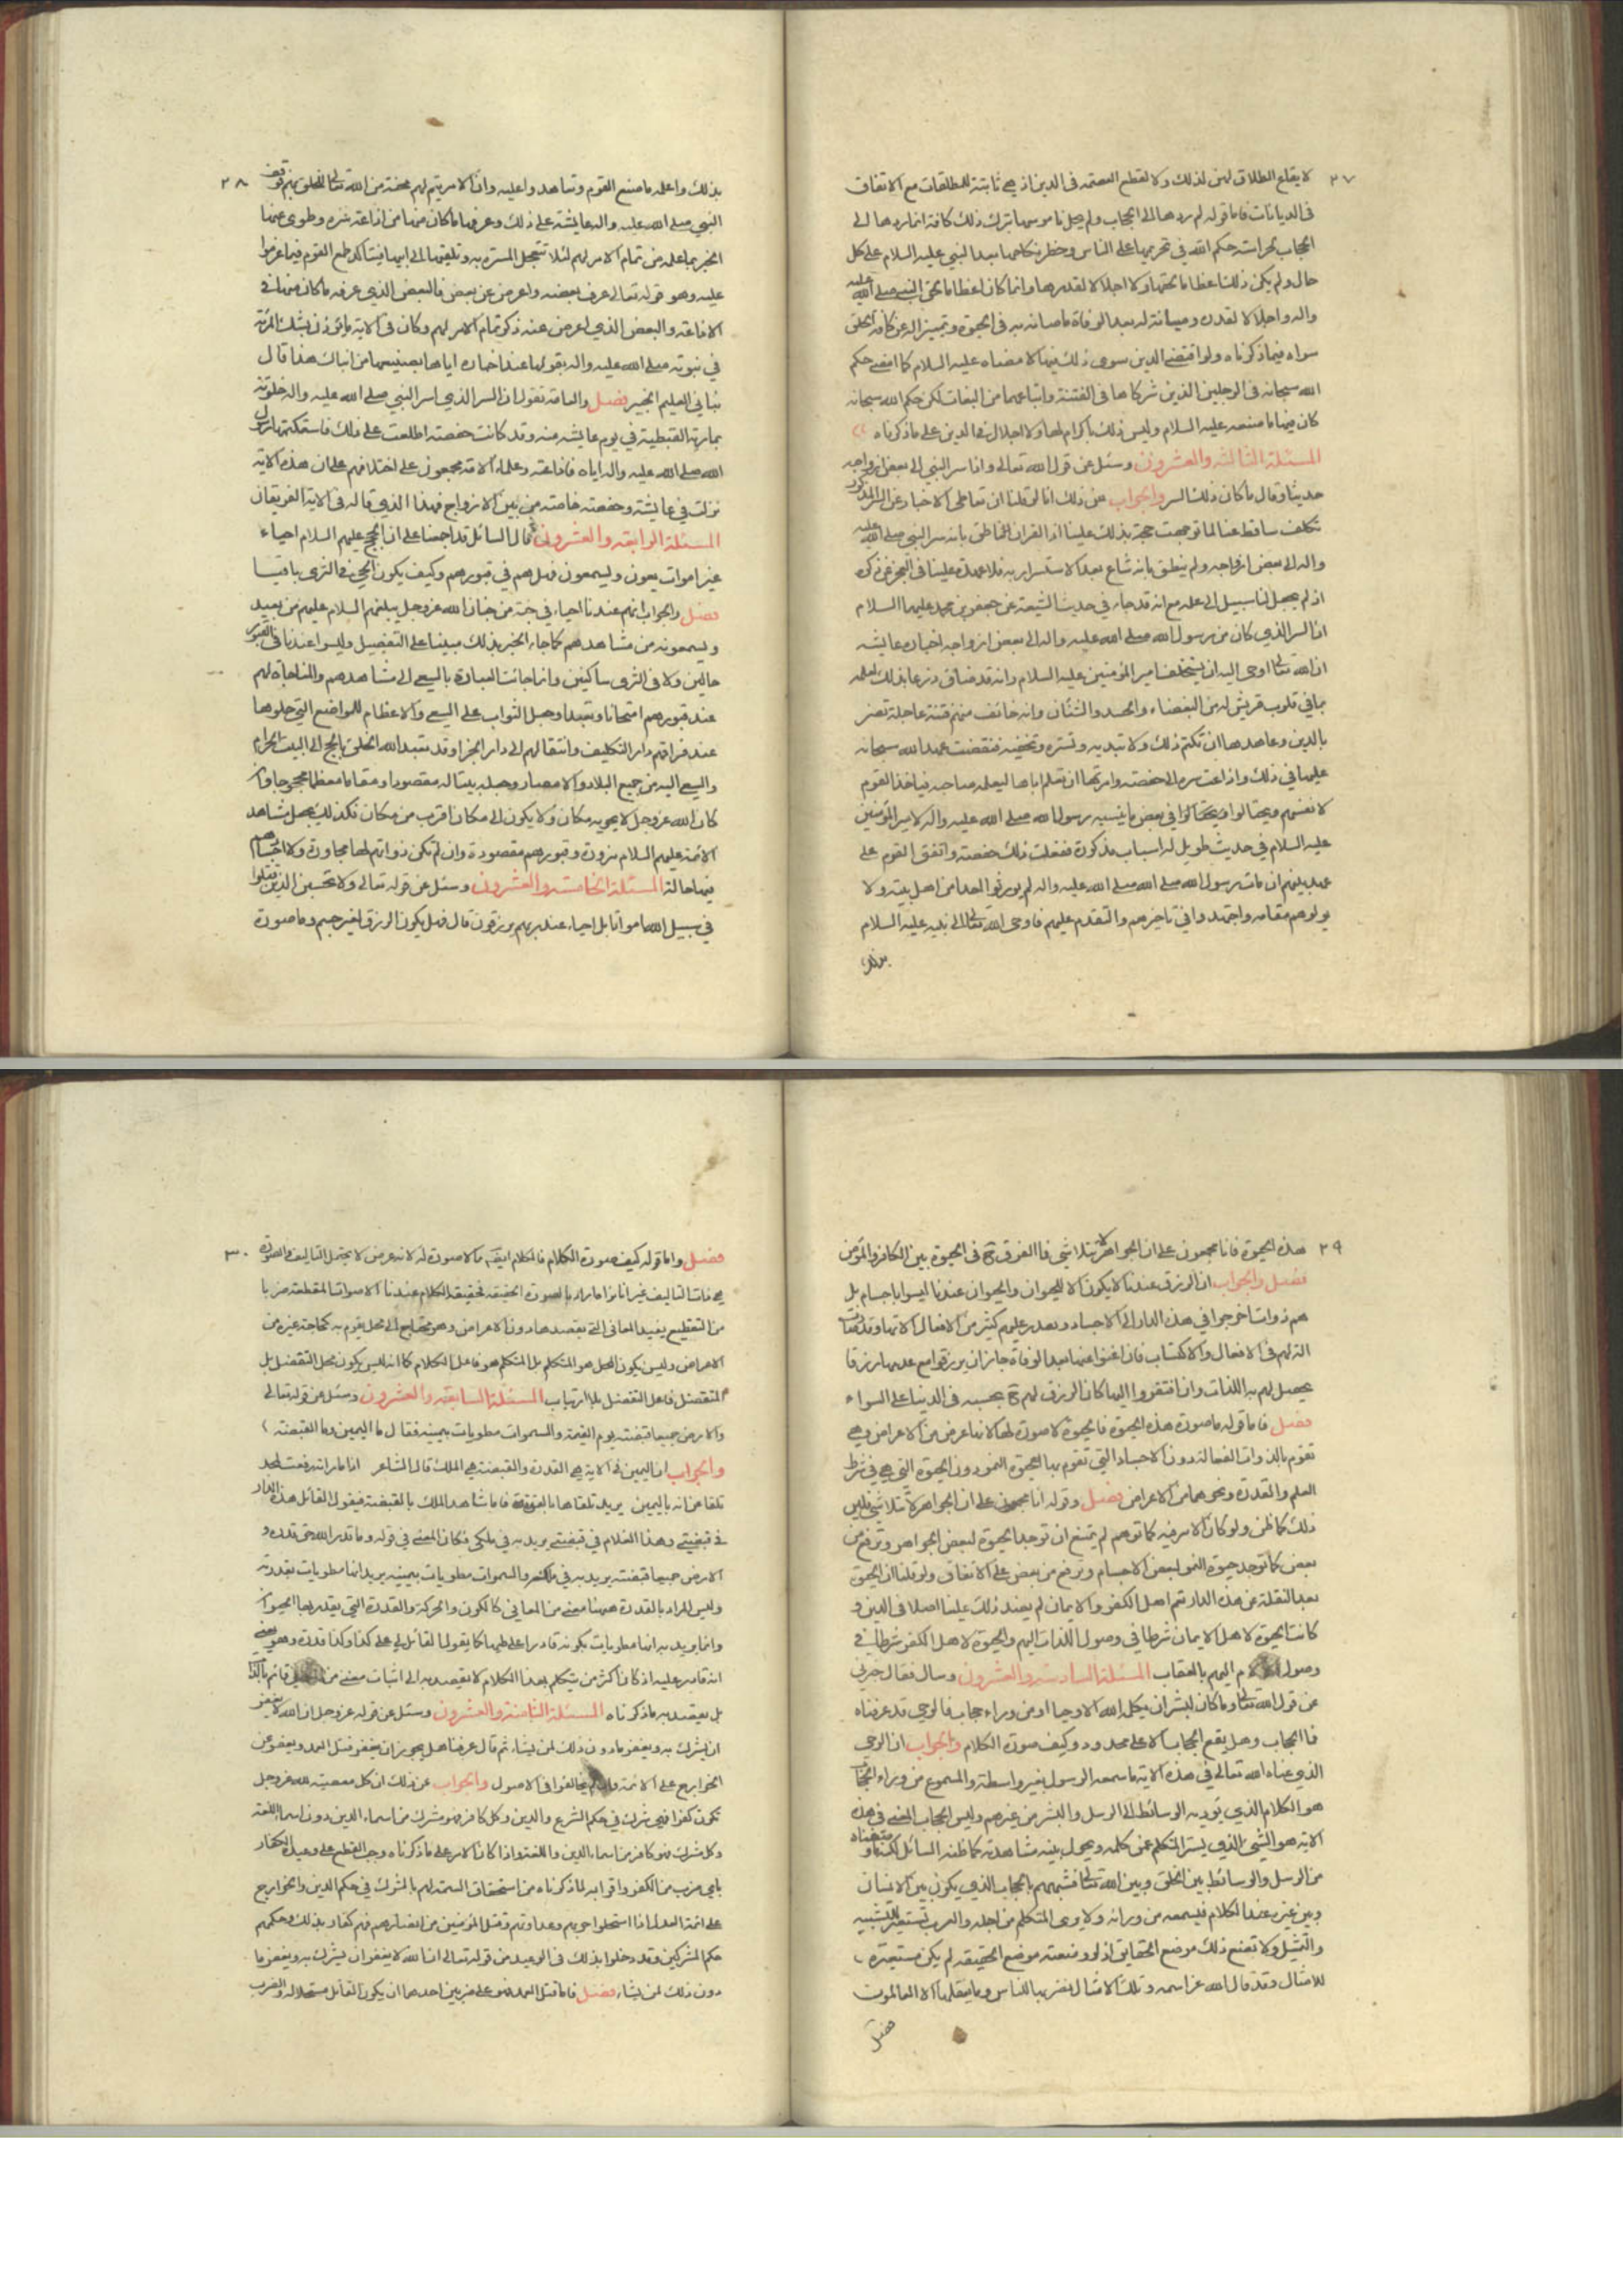 ٢٧
لا يقاع الطلاق لهن لذلك ولا لقطع العصمه فى الدين اذ هي ثابتة للمطلقات مع الاتفاق
فى الديانات فاما قوله لم ردها الى الحجاب ولم ذلك كافة انما ردها الى
الحجاب حراسته حكم الله في تحريمها على الناس وحظر نكاحها بعد النبي عليه السلام على كل
حال ولم يكن ذلك اعظاما بحقها ولا اجلالا لقدرها وانما كان اعظاما لحق النبي صلى الله عليه
واله واجلالا لقدره وصيانة له بعد الوفاة ما صانه به فى الحيوة وتميزا له عن كافة الخلق
سواه فيما ذكرناه ولو اقتضى الدين سوى ذلك فيها لامضاه عليه السلام كما امضى حكم
الله سبحانه فى الرجلين الذين شركاها فى الفتنة واتباعهما من البغات لكن حكم الله سبحانه
كان فيها ما صنعه عليه السلام وليس ذلك باكرام لها ولا اجلال فى الدين على ما ذكرناه
المسئلة الثالثه والعشرون وسئل عن قول الله تعالى واذا اسر النبي الى بعض ازواجه
حديثا وقال ما كان ذلك السر والجواب عن ذلك انا لو قلنا ان تعاطى الاخبار عن السر المذكور
تكلف ساقط عنا لما توجهت حجة بذلك علينا اذ القران انما نطق بانه سر النبي صلى الله عليه
واله الى بعض ازواجه ولم ينطق بانه شاع بعد الاستسرار به فلا عهدة علينا فى العجز عن ذكره
اذ لم يجعل لنا سبيل الى علمه مع انه قد جاء في حديث الشيعة عن جعفر بن محمد عليهما السلام
ان السر الذي كان من رسول الله صلى الله عليه واله الى بعض ازواجه اخباره عايشه
ان الله تعالى اوحى اليه ان يستخلف امير المؤمنين عليه السلام وانه قد ضاق ذرعا بذلك لعلمه
بما في قلوب قريش له من البغضاء والحسد والشنان وانه خائف منهم فتنة عاجلة تضر
بالدين وعاهدها ان تكتم ذلك ولا تبديه وتستره وتخفيه فنقضت عهد الله سبحانه
عليها في ذلك واذاعت سره الى حفصه وامرتها ان تعلم اباها ليعلمه صاحبه فياخذ القوم
لانفسهم ويحتالوا في بعض ما يثبته رسول الله صلى الله عليه واله لامير المؤمنين
عليه السلام في حديث طويل له اسباب مذكورة ففعلت ذلك حفصه واتفق القوم على
عهد بينهم ان مات رسول الله صلى الله عليه واله لم يورثوا احدا من اهل بيته ولا
يولوهم مقامه واجتهدوا في تاخيرهم والتقدم عليهم فاوحى الله تعالى الى نبيه عليه السلام
بذلك
٢٨
بذلك واعلمه ما صنع القوم وتعاهدوا عليه وان الامر يتم لهم محنة من الله تعالى للخلق بهم فوقف
النبي صلى الله عليه واله عايشة على ذلك وعرفها ما كان منها من اذاعة سره وطوى عنها
الخبر بما علمه من تمام الامر لهم لئلا تتعجل المسرة به وتلقيه الى ابيها فيتاكد طمع القوم فيما عزموا
عليه وهو قوله تعالى عرف بعضه واعرض عن بعض فالبعض الذي عرفه ما كان منها في
الاذاعة والبعض الذي اعرض عنه ذكر تمام الامر لهم وكان فى الاية ما يؤذن بشك المرئة
في نبوته صلى الله عليه واله بقولها عند اخباره اياها بصنيعها من انباك هذا قال
نباني العليم الخبير فصل والعامة تقول ان السر الذي اسر النبي صلى الله عليه واله خلوته
بمارية القبطية في يوم عايشه منه وقد كانت حفصه اطلعت على ذلك فاستكتمها رسول
الله صلى الله عليه واله اياه فاذاعته وعلماء الامة مجمعون على اختلافهم على ان هذه الاية
نزلت في عايشة وحفصة خاصة من بين الازواج فهذا الذي قاله في الاية الفريقان
المسئلة الرابعة والعشرون قال السائل قد اجمعنا على ان الحجج عليهم السلام احياء
غير اموات يعون ويسمعون فهل هم في قبورهم وكيف يكون الحي في الثرى باقيا
فصل والجواب انهم عندنا احياء في جنة من جنان الله عز وجل يبلغهم السلام عليهم من بعيد
ويسمعونه من مشاهدهم كما جاء الخبر بذلك مبينا على التفصيل وليسوا عندنا في القبور
حالين ولا في الثرى ساكنين وانما جائت العبادة بالسعي الى مشاهدهم والمناجاة لهم
عند قبورهم امتحانا وتعبدا وجعل الثواب على السعي والاعظام للمواضع التي حلوها
عند فراقهم دار التكليف وانتقالهم الى دار الجزاء وقد تعبد الله الخلق بالحج الى البيت الحرام
والسعي اليه من جميع البلاد والامصار وجعله بيتا له مقصودا ومقاما معظما محجوجا وان
كان الله عز وجل لا يحويه مكان ولا يكون الى مكان اقرب من مكان فكذلك يجعل مشاهد
الائمة عليهم السلام مزورة وقبورهم مقصودة وان لم تكن ذواتهم لها مجاورة ولا اجسامهم
فيها حالة المسئلة الخامسة والعشرون وسئل عن قوله تعالى ولا تحسبن الذين قتلوا
في سبيل الله امواتا بل احياء عند ربهم يرزقون قال فهل يكون الرزق لغير جسم وما صورة
٢٩
هذه الحيوة فانا مجمعون على ان الجواهر لا تتلاشي فما الفرق ح في الحيوة بين الكافر والمؤمن
فصل والجواب ان الرزق عندنا لا يكون الا للحيوان والحيوان عندنا ليسوا باجسام بل
هم ذوات اخرجوا في هذه الدار الى الاجساد وتعذر عليهم كثير من الافعال الا بها
الة لهم في الافعال والاكتساب فان اغنوا عنها بعد الوفاة جاز ان يرزقوا مع عدمها رزقا
يحصل لهم به اللذات وان افتقروا اليها كان الرزق لهم ح بحسبه في الدنيا على السواء
فصل فاما قوله ما صورة هذه الحيوة فالحيوة لا صورة لها لانها عرض من الاعراض وهي
تقوم بالذوات الفعالة دون الاجساد التي تقوم بها الحيوة النمو دون الحيوة التي هي في شرط
العلم والقدرة ونحوهما من الاعراض فصل وقوله انا مجمعون على ان الجواهر لا تتلاشي فليس
ذلك كما ظن ولو كان الامر فيه كما توهم لم يمتنع ان توجد الحيوة لبعض الجواهر وترفع من
بعض كما توجد حيوة النمو لبعض الاجسام وترفع من بعض على الاتفاق ولو قلنا ان الحيوة
بعد النقلة عن هذه الدار تعم اهل الكفر والايمان لم يفسد ذلك علينا اصلا في الدين و
كانت الحيوة لاهل الايمان شرطا في وصول اللذات اليهم والحيوة لاهل الكفر شرطا في
وصول الالام اليهم بالعقاب المسئلة السادسة والعشرون وسال فقال خبرني
عن قول الله تعالى وما كان لبشر ان يكلمه الله الا وحيا او من وراء حجاب فالوحي قد عرفناه
فما الحجاب وهل يقع الحجاب الا على محدود وكيف صورة الكلام والجواب ان الوحي
الذي عناه الله تعالى في هذه الاية ما سمعه الرسول بغير واسطة والمسموع من وراء الحجاب
هو الكلام الذي تؤديه الوسائط الى الرسل والبشر من غيرهم وليس الحجاب المعني في هذه
الاية هو الشيء الذي يستر المتكلم عمن كلمه ويحول بينه مشاهدته كما ظنه السائل لكنه ما وصفناه
من الرسل والوسائط بين الخلق وبين الله تعالى فشبههم بالحجاب الذي يكون بين الانسان
وبين غيره عند الكلام فيسمعه من ورائه ولا يرى المتكلم من اجله والعرب تستعير للتشبيه
والتمثيل ولا تضع ذلك موضع الحقايق اذ لو وضعته موضع الحقيقه لم يكن مستعيرة
للامثال وقد قال الله عز اسمه وتلك الامثال نضربها للناس وما يعقلها الا العالمون
فصل
٣٠
فصل واما قوله كيف صورة الكلام فالكلام ايضا مما لا صورة له لانه عرض لا يحتمل التاليف والصورة
هي ذات التاليف غير انا نراه اراد بالصورة الحقيقه فحقيقة الكلام عندنا الاصوات المقطعه ضربا
من التقطيع يفيد المعاني التي يقصدها دون الاعراض وهو محتاج الى محل يقوم به كحاجة غيره من
الاعراض وليس يكون المحل هو المتكلم بل المتكلم هو فاعل الكلام كما انه ليس يكون محل التفضل بل
المتفضل فاعل التفضل بلا ارتياب المسئلة السابعة والعشرون وسئل عن قوله تعالى
والارض جميعا قبضته يوم القيمة والسموات مطويات بيمينه فقال ما اليمين وما القبضة
والجواب ان اليمين في الاية هي القدرة والقبضة هي الملك قال الشاعر اذا ما راية رفعت لمجد
تلقاها عرابة باليمين يريد تلقاها بالقوة فاما شاهد الملك بالقبضة فيقول القائل هذه الدار
في قبضتي وهذا الغلام في قبضتي يريد به في ملكي فكان المعنى في قوله وما قدروا الله حق قدره و
الارض جميعا قبضته يريد به في ملكه والسموات مطويات بيمينه يريد انها مطويات بقدرته
وليس المراد بالقدرة ههنا معنى من المعاني كالكون والحركة والقدرة التي يقدر بها الحيوان
وانما يريد به انها مطويات بكونه قادرا على طيها كما يقول القائل لي على كذا وكذا قدرة وهو يعني
انه قادر عليه اذ كان اكثر من يتكلم بهذا الكلام لا يقصد به الى اثبات معنى من قائم بالذات
بل يقصد به ما ذكرناه المسئلة الثامنة والعشرون وسئل عن قوله عز وجل ان الله لا يغفر
ان يشرك به ويغفر ما دون ذلك لمن يشاء ثم قال عرفنا هل يجوز ان يغفر قتل العمد ويعفو عن
الخوارج على الائمة وان لم يخالفوا في الاصول والجواب عن ذلك ان كل معصيته لله عز وجل
تكون كفرا فهي شرك في حكم الشرع والدين وكل كافر فهو مشرك من اسماء الدين دون اسماء اللغة
وكل مشرك فهو كافر من اسماء الدين واللغة واذا كان الامر على ما ذكرناه وجب القطع على وعيد الكفار
باي ضرب من الكفر واقوابه لما ذكرناه من استحقاق السمة لهم بالشرك في حكم الدين والخوارج
على ائمة العدل اذا استحلوا حربهم وعداوتهم وقتل المؤمنين من انصارهم فهم كفار بذلك وحكمهم
حكم المشركين وقد دخلوا بذلك في الوعيد من قوله تعالى ان الله لا يغفر ان يشرك به ويغفر ما
دون ذلك لمن يشاء فصل فاما قتل العمد فهو على ضربين احدهما ان يكون القاتل مستحلا له والضرب